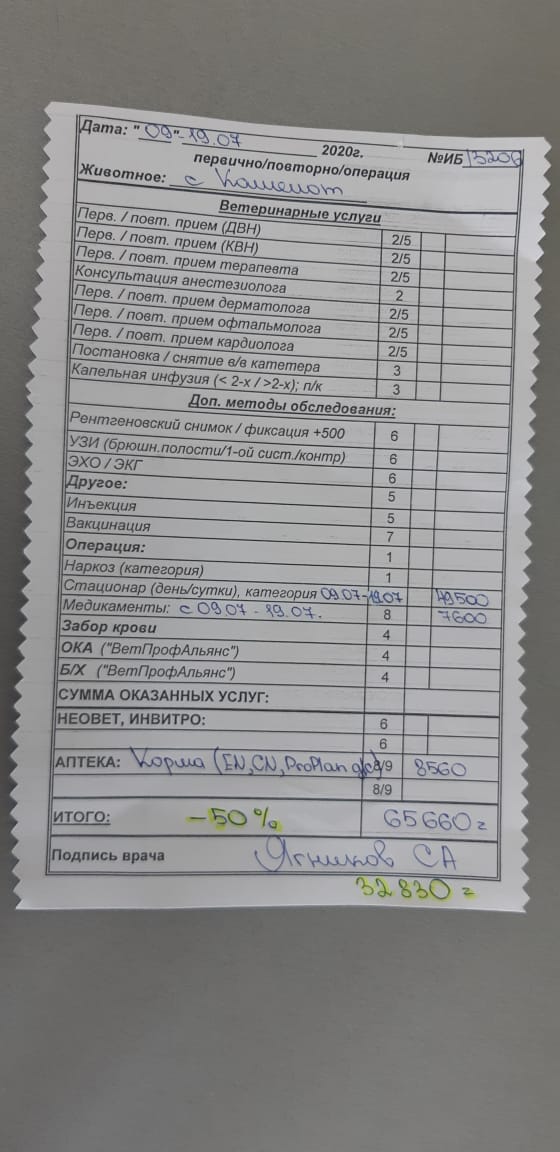 Дата: "09"-19.07 2020г. №ИБ 13206
первично/повторно/операция
Животное: с Кашемот
Ветеринарные услуги
Перв. / повт. прием (ДВН) 2/5
Перв. / повт. прием (КВН) 2/5
Перв. / повт. прием терапевта 2/5
Консультация анестезиолога 2
Перв. / повт. прием дерматолога 2/5
Перв. / повт. прием офтальмолога 2/5
Перв. / повт. прием кардиолога 2/5
Постановка / снятие в/в катетера 3
Капельная инфузия (< 2-х / >2-х); п/к 3
Доп. методы обследования:
Рентгеновский снимок / фиксация +500 6
УЗИ (брюшн.полости/1-ой сист./контр) 6
ЭХО / ЭКГ 6
Другое: 5
Инъекция 5
Вакцинация 7
Операция: 1
Наркоз (категория) 1
Стационар (день/сутки), категория 09.07-19.07 49500
Медикаменты: с 09.07 - 19.07. 8 7600
Забор крови 4
ОКА ("ВетПрофАльянс") 4
Б/Х ("ВетПрофАльянс") 4
СУММА ОКАЗАННЫХ УСЛУГ:
НЕОВЕТ, ИНВИТРО: 6
6
АПТЕКА: Корма (EN, CN, ProPlan 8/9 8560
8/9
ИТОГО: -50% 65660=
Подпись врача Ягников СА
32830=